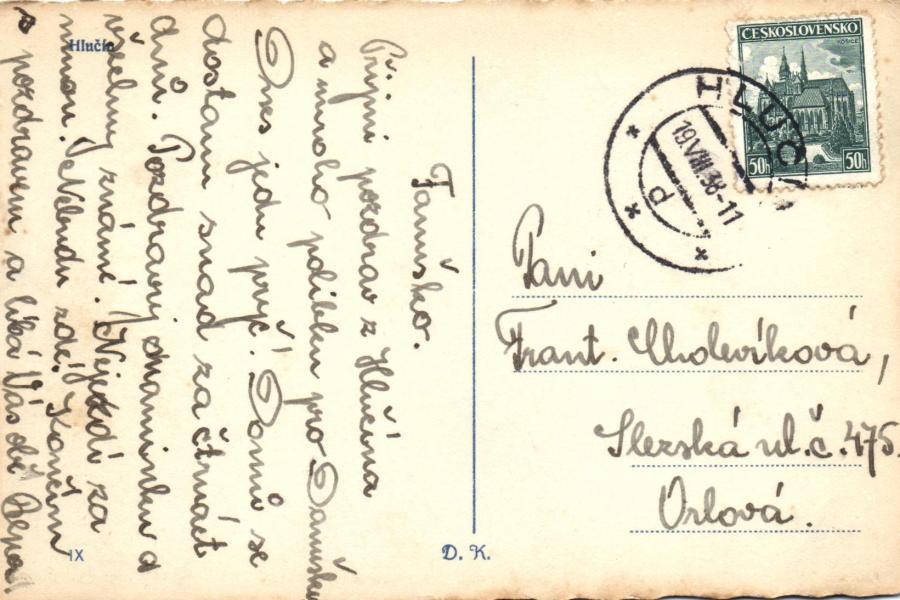 Hlučín
Fanuško.
Přijmi pozdrav z Hlučína
a mnoho polibku pro Danušku
Dnes jedu pryč. Domů se
dostanu snad za čtrnáct
dnů. Pozdravuj maminku a
všechny známé.
mnou. Nebudu zde. Končím
s pozdravem a líbá Vás
IX
D. K.
ČESKOSLOVENSKO
50h 50h
HLUČÍN
19.VIII.38-11
Paní
Frant. Cholevíková,
Slezská ul. č. 475
Orlová.